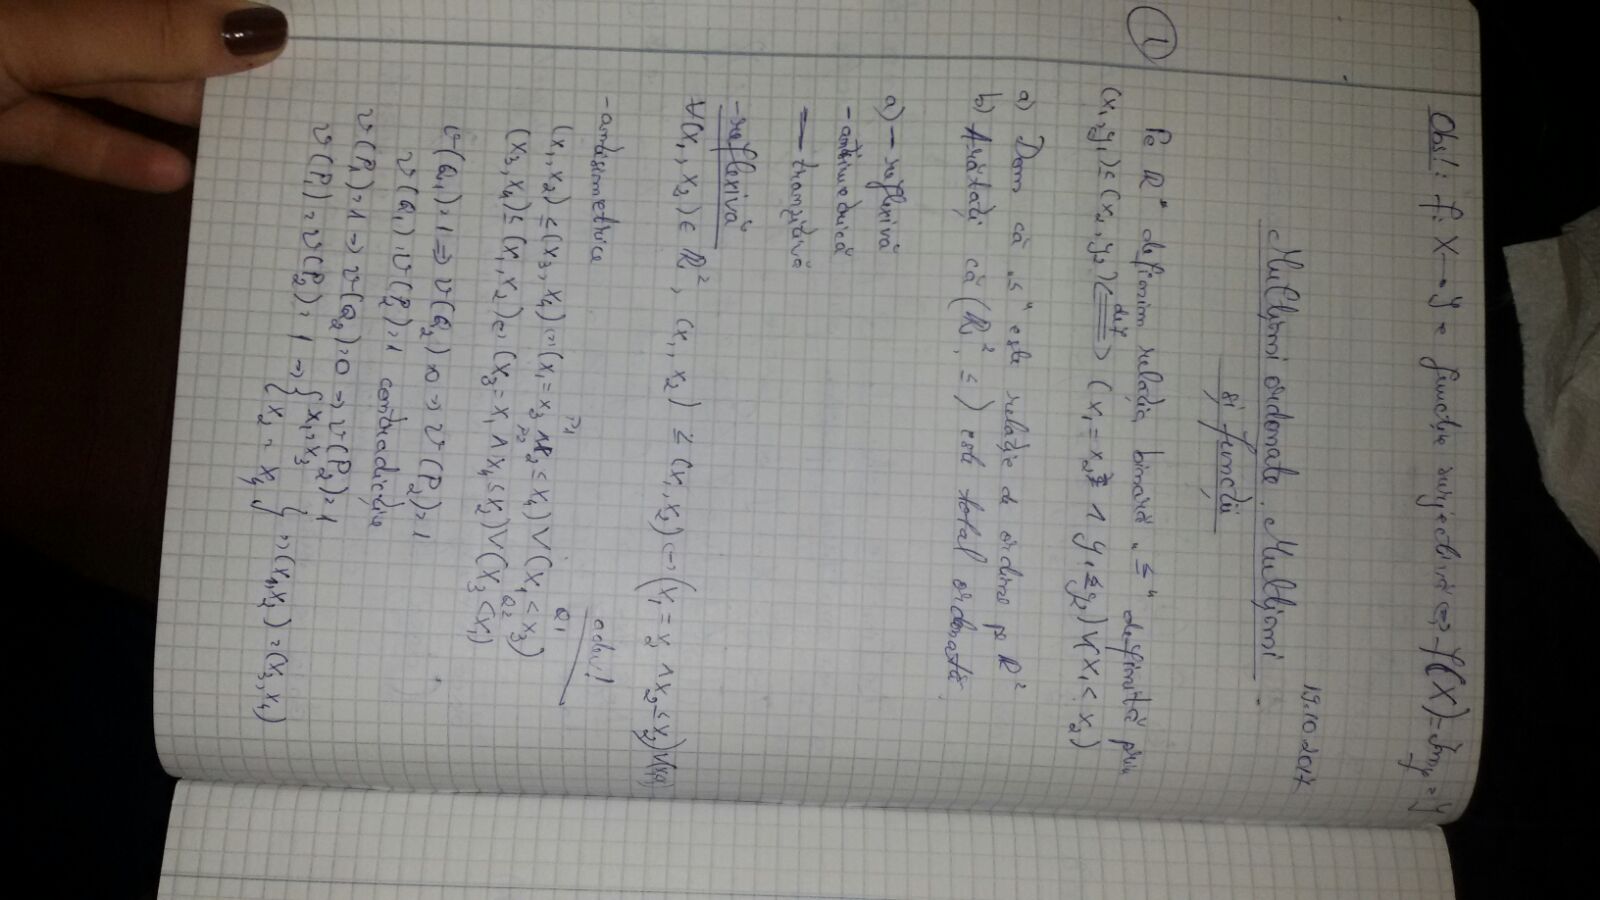 Obs!: f: X → Y e funcția surjectivă ⇔ f(X) = Im f = Y
19.10.2017
Mulțimi ordonate. Mulțimi
și funcții
1
Pe R² definim relația binară „≤" definită prin
(x1, y1) ≤ (x2, y2) <=def=> (x1 = x2 ∧ y1 ≤ y2) ∨ (x1 < x2)
a) Dem că „≤" este relație de ordine pe R²
b) Arătați că (R², ≤) este total ordonată.
a) - reflexivă
- antisimetrică
- tranzitivă
- reflexivă
∀(x1, x2) ∈ R², (x1, x2) ≤ (x1, x2) ⇔ (x1 = x1 ∧ x2 ≤ x2) ∨
adev!
- antisimetrica
P1 Q1
(x1, x2) ≤ (x3, x4) ⇔ (x1 = x3 ∧ x2 ≤ x4) ∨ (x1 < x3)
P2 Q2
(x3, x4) ≤ (x1, x2) ⇔ (x3 = x1 ∧ x4 ≤ x2) ∨ (x3 < x1)
v(Q1) = 1 ⇒ v(Q2) = 0 ⇒ v(P2) = 1
v(Q1) = v(P2) = 1 contradicție
v(P1) = 1 ⇒ v(Q2) = 0 ⇒ v(P2) = 1
v(P1) = v(P2) = 1 ⇒ { x1 = x3
{ x2 = x4 } ⇒ (x1, x2) = (x3, x4)